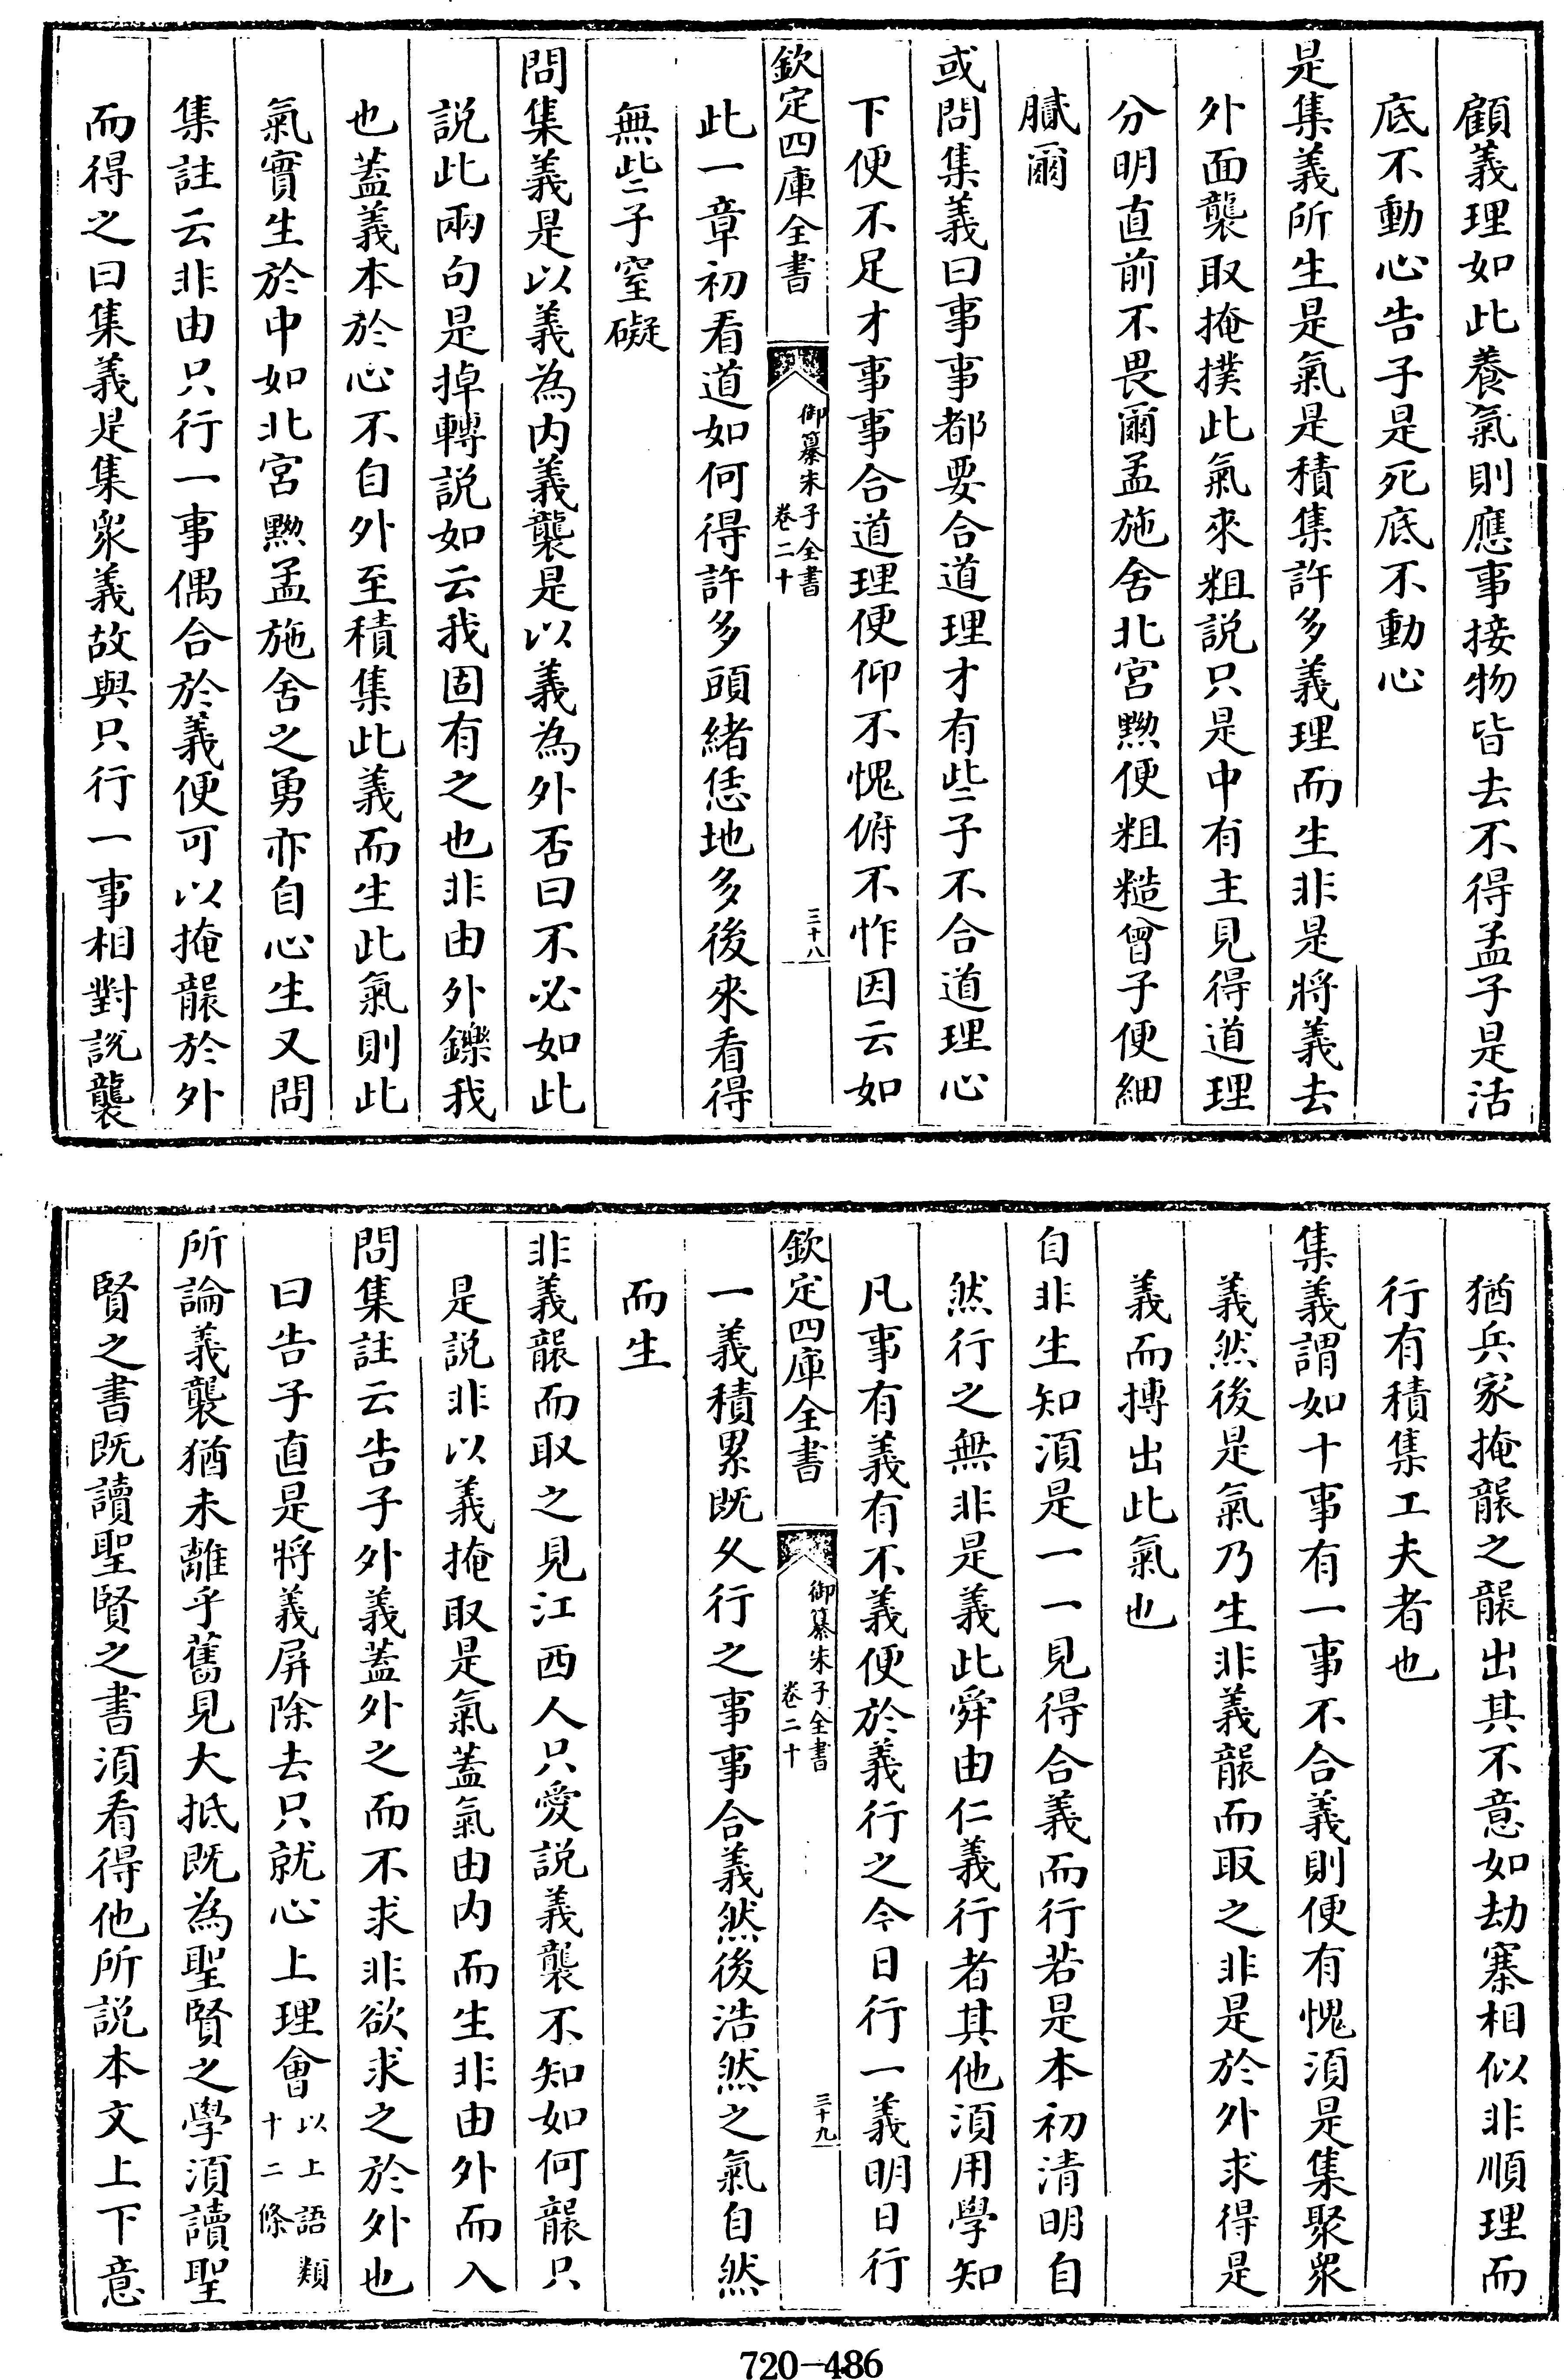 顧義理如此養氣則應事接物皆去不得孟子是活
底不動心告子是死底不動心
是集義所生是氣是積集許多義理而生非是將義去
外面襲取掩撲此氣來粗説只是中有主見得道理
分明直前不畏爾孟施舍北宮黝便粗糙曾子便細
膩爾
或問集義曰事事都要合道理才有些子不合道理心
下便不足才事事合道理便仰不愧俯不怍因云如
欽定四庫全書
御纂朱子全書
卷二十
三十八
此一章初看道如何得許多頭緒恁地多後來看得
無些子窒礙
問集義是以義為内義襲是以義為外否曰不必如此
説此兩句是掉轉説如云我固有之也非由外鑠我
也蓋義本於心不自外至積集此義而生此氣則此
氣實生於中如北宮黝孟施舍之勇亦自心生又問
集註云非由只行一事偶合於義便可以掩襲於外
而得之曰集義是集衆義故與只行一事相對説襲
猶兵家掩襲之襲出其不意如劫寨相似非順理而
行有積集工夫者也
集義謂如十事有一事不合義則便有愧須是集聚衆
義然後是氣乃生非義襲而取之非是於外求得是
義而摶出此氣也
自非生知須是一一見得合義而行若是本初清明自
然行之無非是義此舜由仁義行者其他須用學知
凡事有義有不義便於義行之今日行一義明日行
欽定四庫全書
御纂朱子全書
卷二十
三十九
一義積累既久行之事事合義然後浩然之氣自然
而生
非義襲而取之見江西人只愛説義襲不知如何襲只
是説非以義掩取是氣蓋氣由内而生非由外而入
問集註云告子外義蓋外之而不求非欲求之於外也
曰告子直是將義屏除去只就心上理會以上語類
十二條
所論義襲猶未離乎舊見大抵既為聖賢之學須讀聖
賢之書既讀聖賢之書須看得他所説本文上下意
720-486